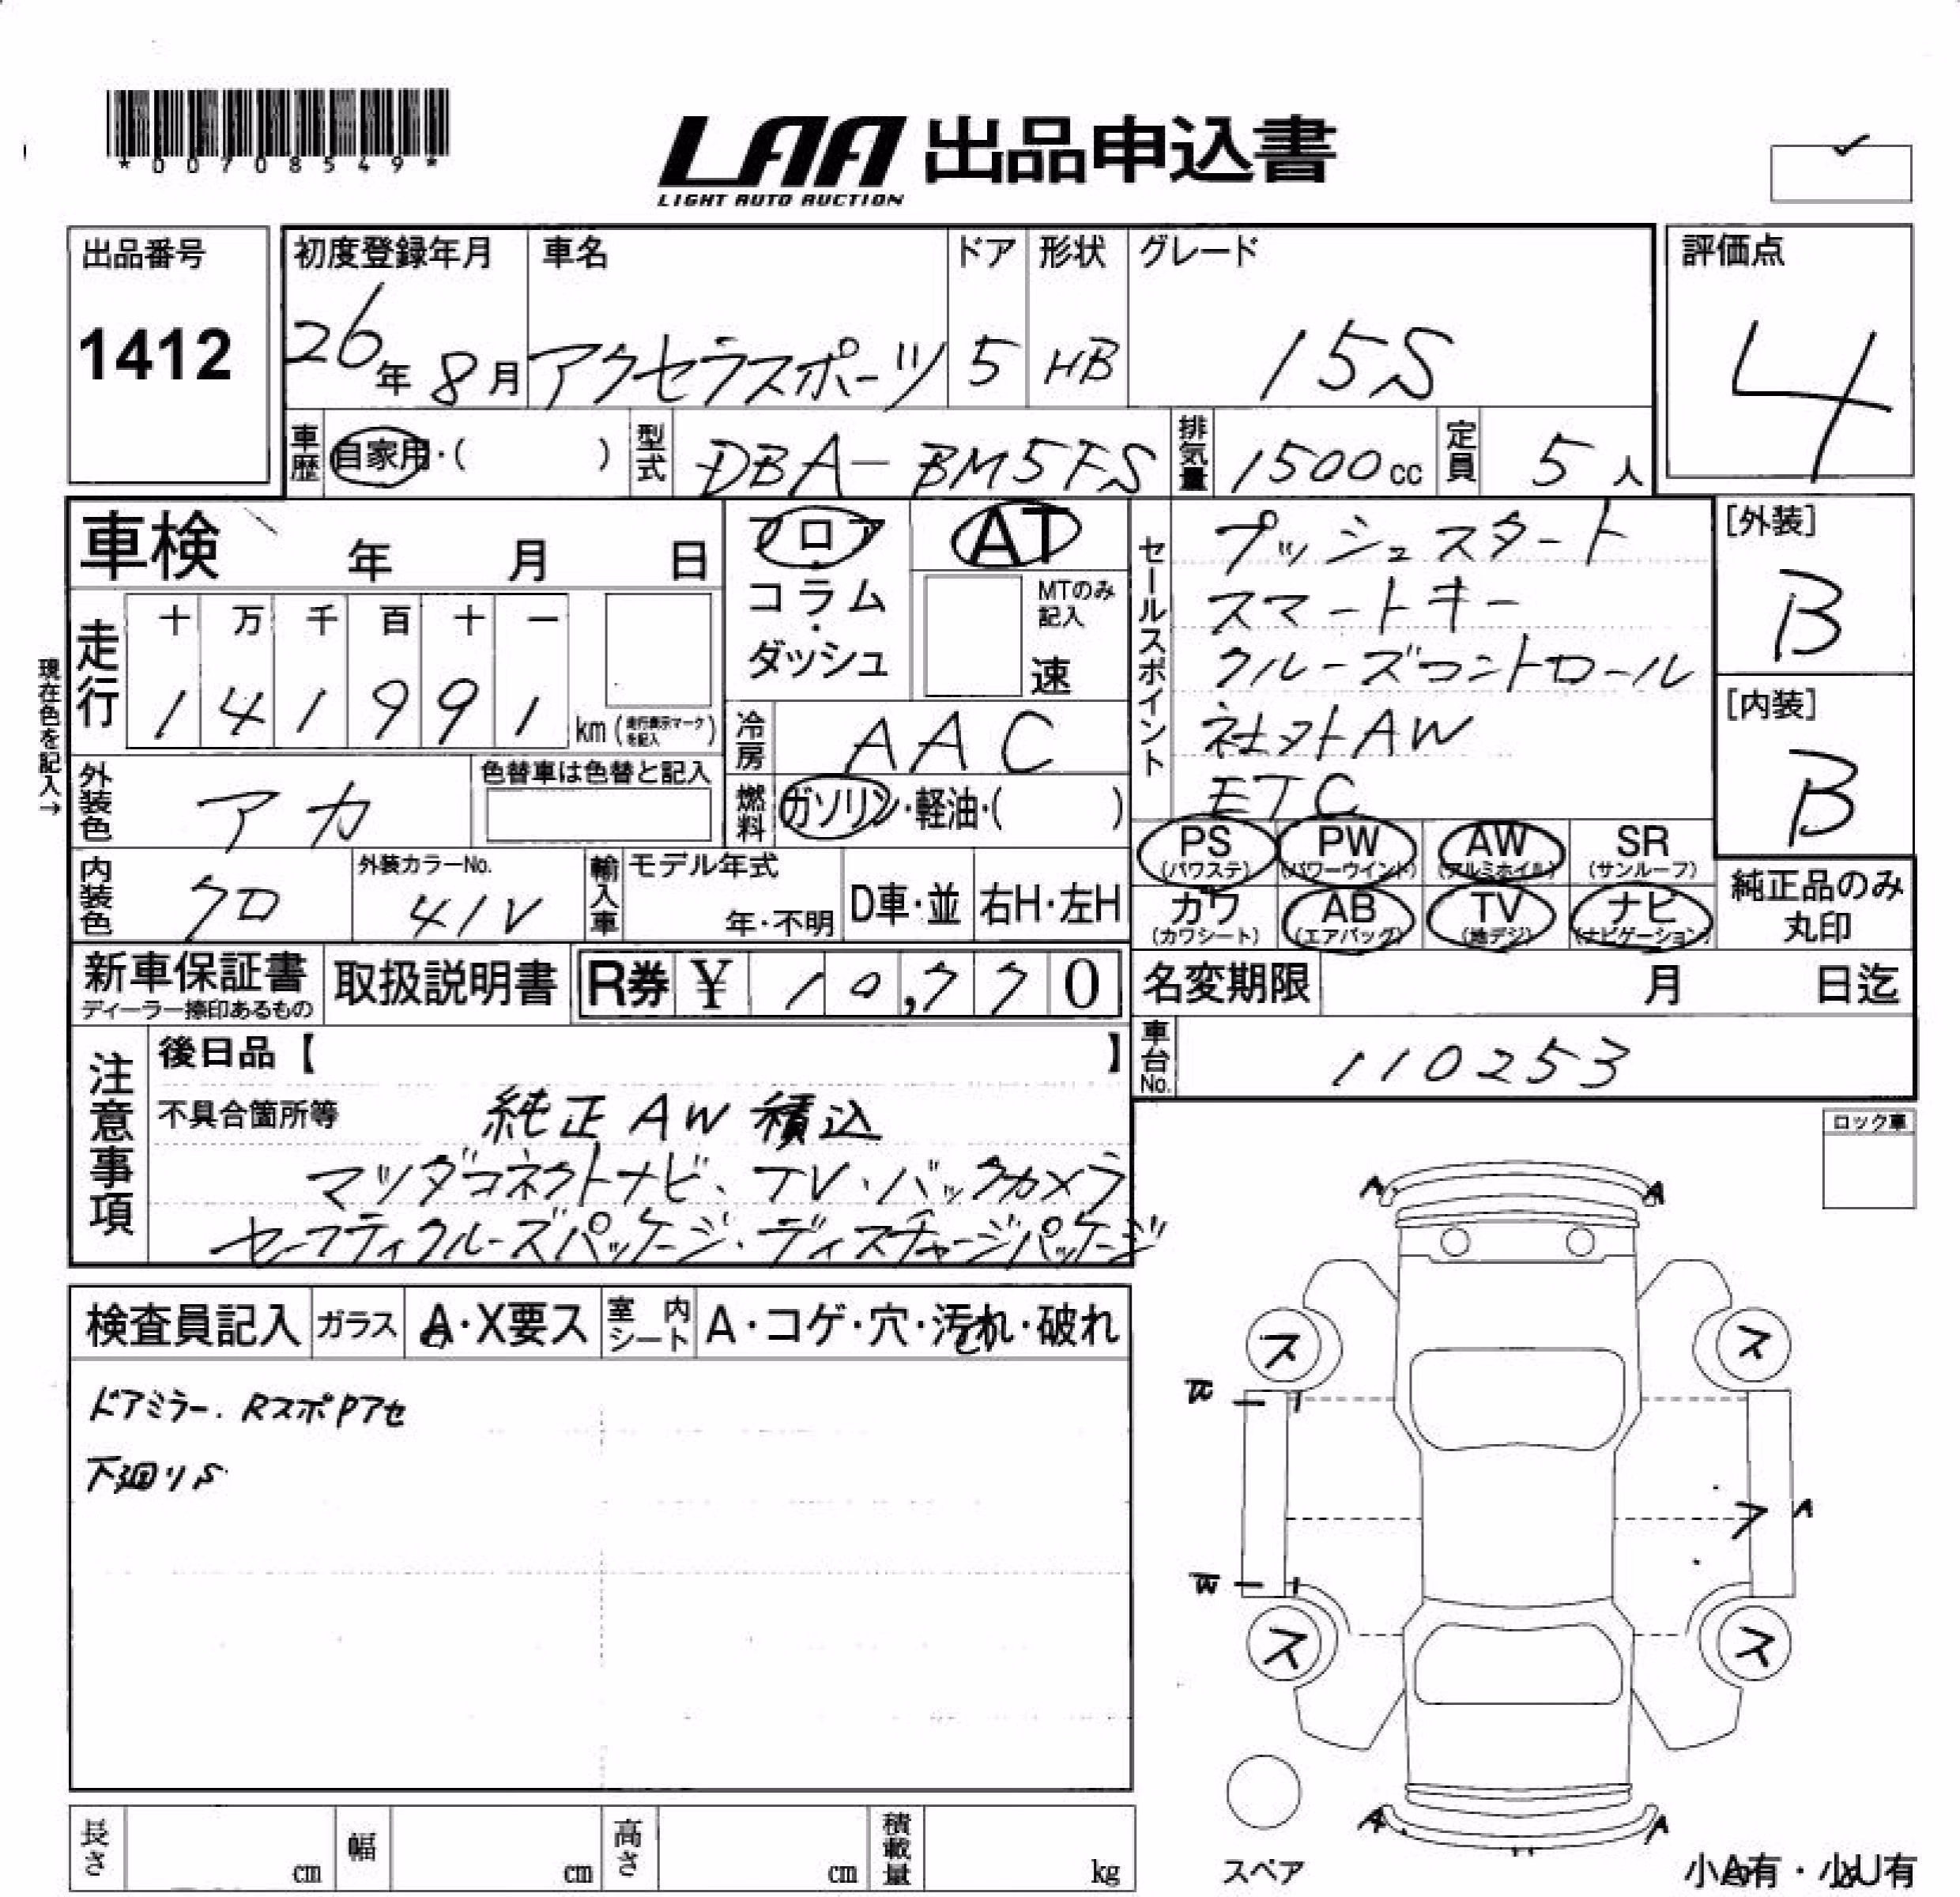 *00708549*
LAA 出品申込書
LIGHT AUTO AUCTION
出品番号
1412
初度登録年月
26年 8月
車名
アクセラスポーツ
ドア
5
形状
HB
グレード
15S
評価点
4
車歴
自家用・( )
型式
DBA-BM5FS
排気量
1500cc
定員
5人
車検 年 月 日
フロア・コラム・ダッシュ
AT
MTのみ記入
速
セールスポイント
プッシュスタート
スマートキー
クルーズコントロール
社外AW
ETC
[外装]
B
[内装]
B
現在色を記入→
走行
十 万 千 百 十 一
1 4 1 9 9 1
km(走行表示マークを記入)
冷房
AAC
外装色
アカ
色替車は色替と記入
燃料
ガソリン・軽油・( )
PS (パワステ)
PW (パワーウインド)
AW (アルミホイル)
SR (サンルーフ)
カワ (カワシート)
AB (エアバッグ)
TV (地デジ)
ナビ (ナビゲーション)
純正品のみ丸印
内装色
クロ
外装カラーNo.
41V
輸入車
モデル年式
年・不明
D車・並
右H・左H
新車保証書
ディーラー捺印あるもの
取扱説明書
R券 ¥ 10,770
名変期限 月 日迄
車台No.
110253
注意事項
後日品【 】
不具合箇所等
純正AW積込
マツダコネクトナビ、TV、バックカメラ
セーフティクルーズパッケージ・ディスチャージパッケージ
ロック車
検査員記入
ガラス
A・X要ス
室内シート
A・コゲ・穴・汚れ・破れ
ドアミラー、RスポPアセ
下廻りS
A A
ス ス
W
フ A
W
ス ス
A A
スペア
小A有・小U有
長さ cm
幅 cm
高さ cm
積載量 kg